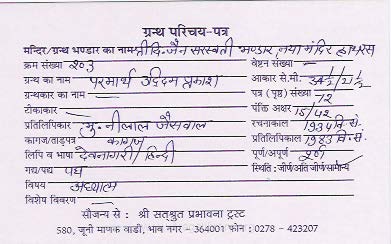 ग्रन्थ परिचय-पत्र
मन्दिर/ग्रन्थ भण्डार का नाम श्री दि. जैन सरस्वती भण्डार, नया मंदिर हाथरस
क्रम संख्या २०३ वेष्टन संख्या
ग्रन्थ का नाम परमार्थ प्रकाश आकार से.मी. 34½/21½
ग्रन्थकार का नाम पत्र (पृष्ठ) संख्या 12
टीकाकार पंक्ति अक्षर 15/42
प्रतिलिपिकार मु. नीलाल जैसवाल रचनाकाल 1934 वि.सं.
कागज/ताड़पत्र कागज प्रतिलिपिकाल 1983 वि.सं.
लिपि व भाषा देवनागरी/हिन्दी पूर्ण/अपूर्ण पूर्ण
गद्य/पद्य पद्य स्थिति : जीर्ण/अति जीर्ण/सामान्य
विषय अध्यात्म
विशेष विवरण
सौजन्य से : श्री सतश्रुत प्रभावना ट्रस्ट
580, जूनी माणक वाडी, भाव नगर - 364001 फोन : 0278 - 423207